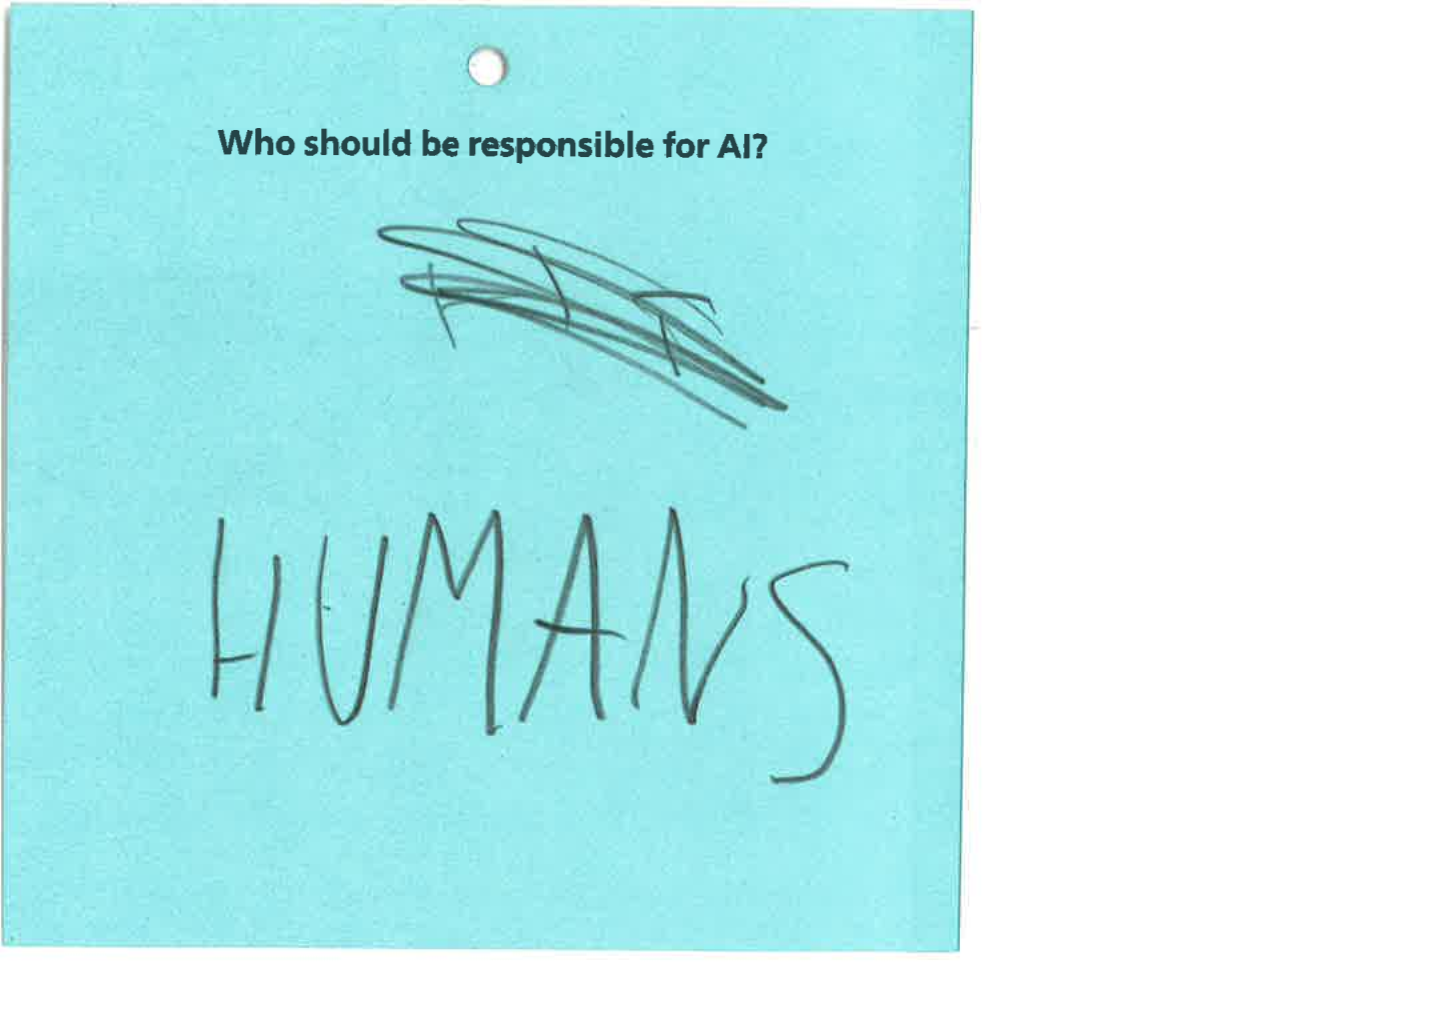 Who should be responsible for AI?
HUMANS